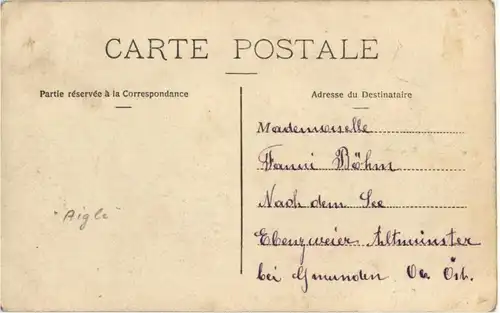 CARTE POSTALE
Partie réservée à la Correspondance
Adresse du Destinataire
Mademoiselle
Fanni Böhm
Nach dem See
Ebenzweier Altmünster
bei Gmunden Ob. Öst.
"Aigle"